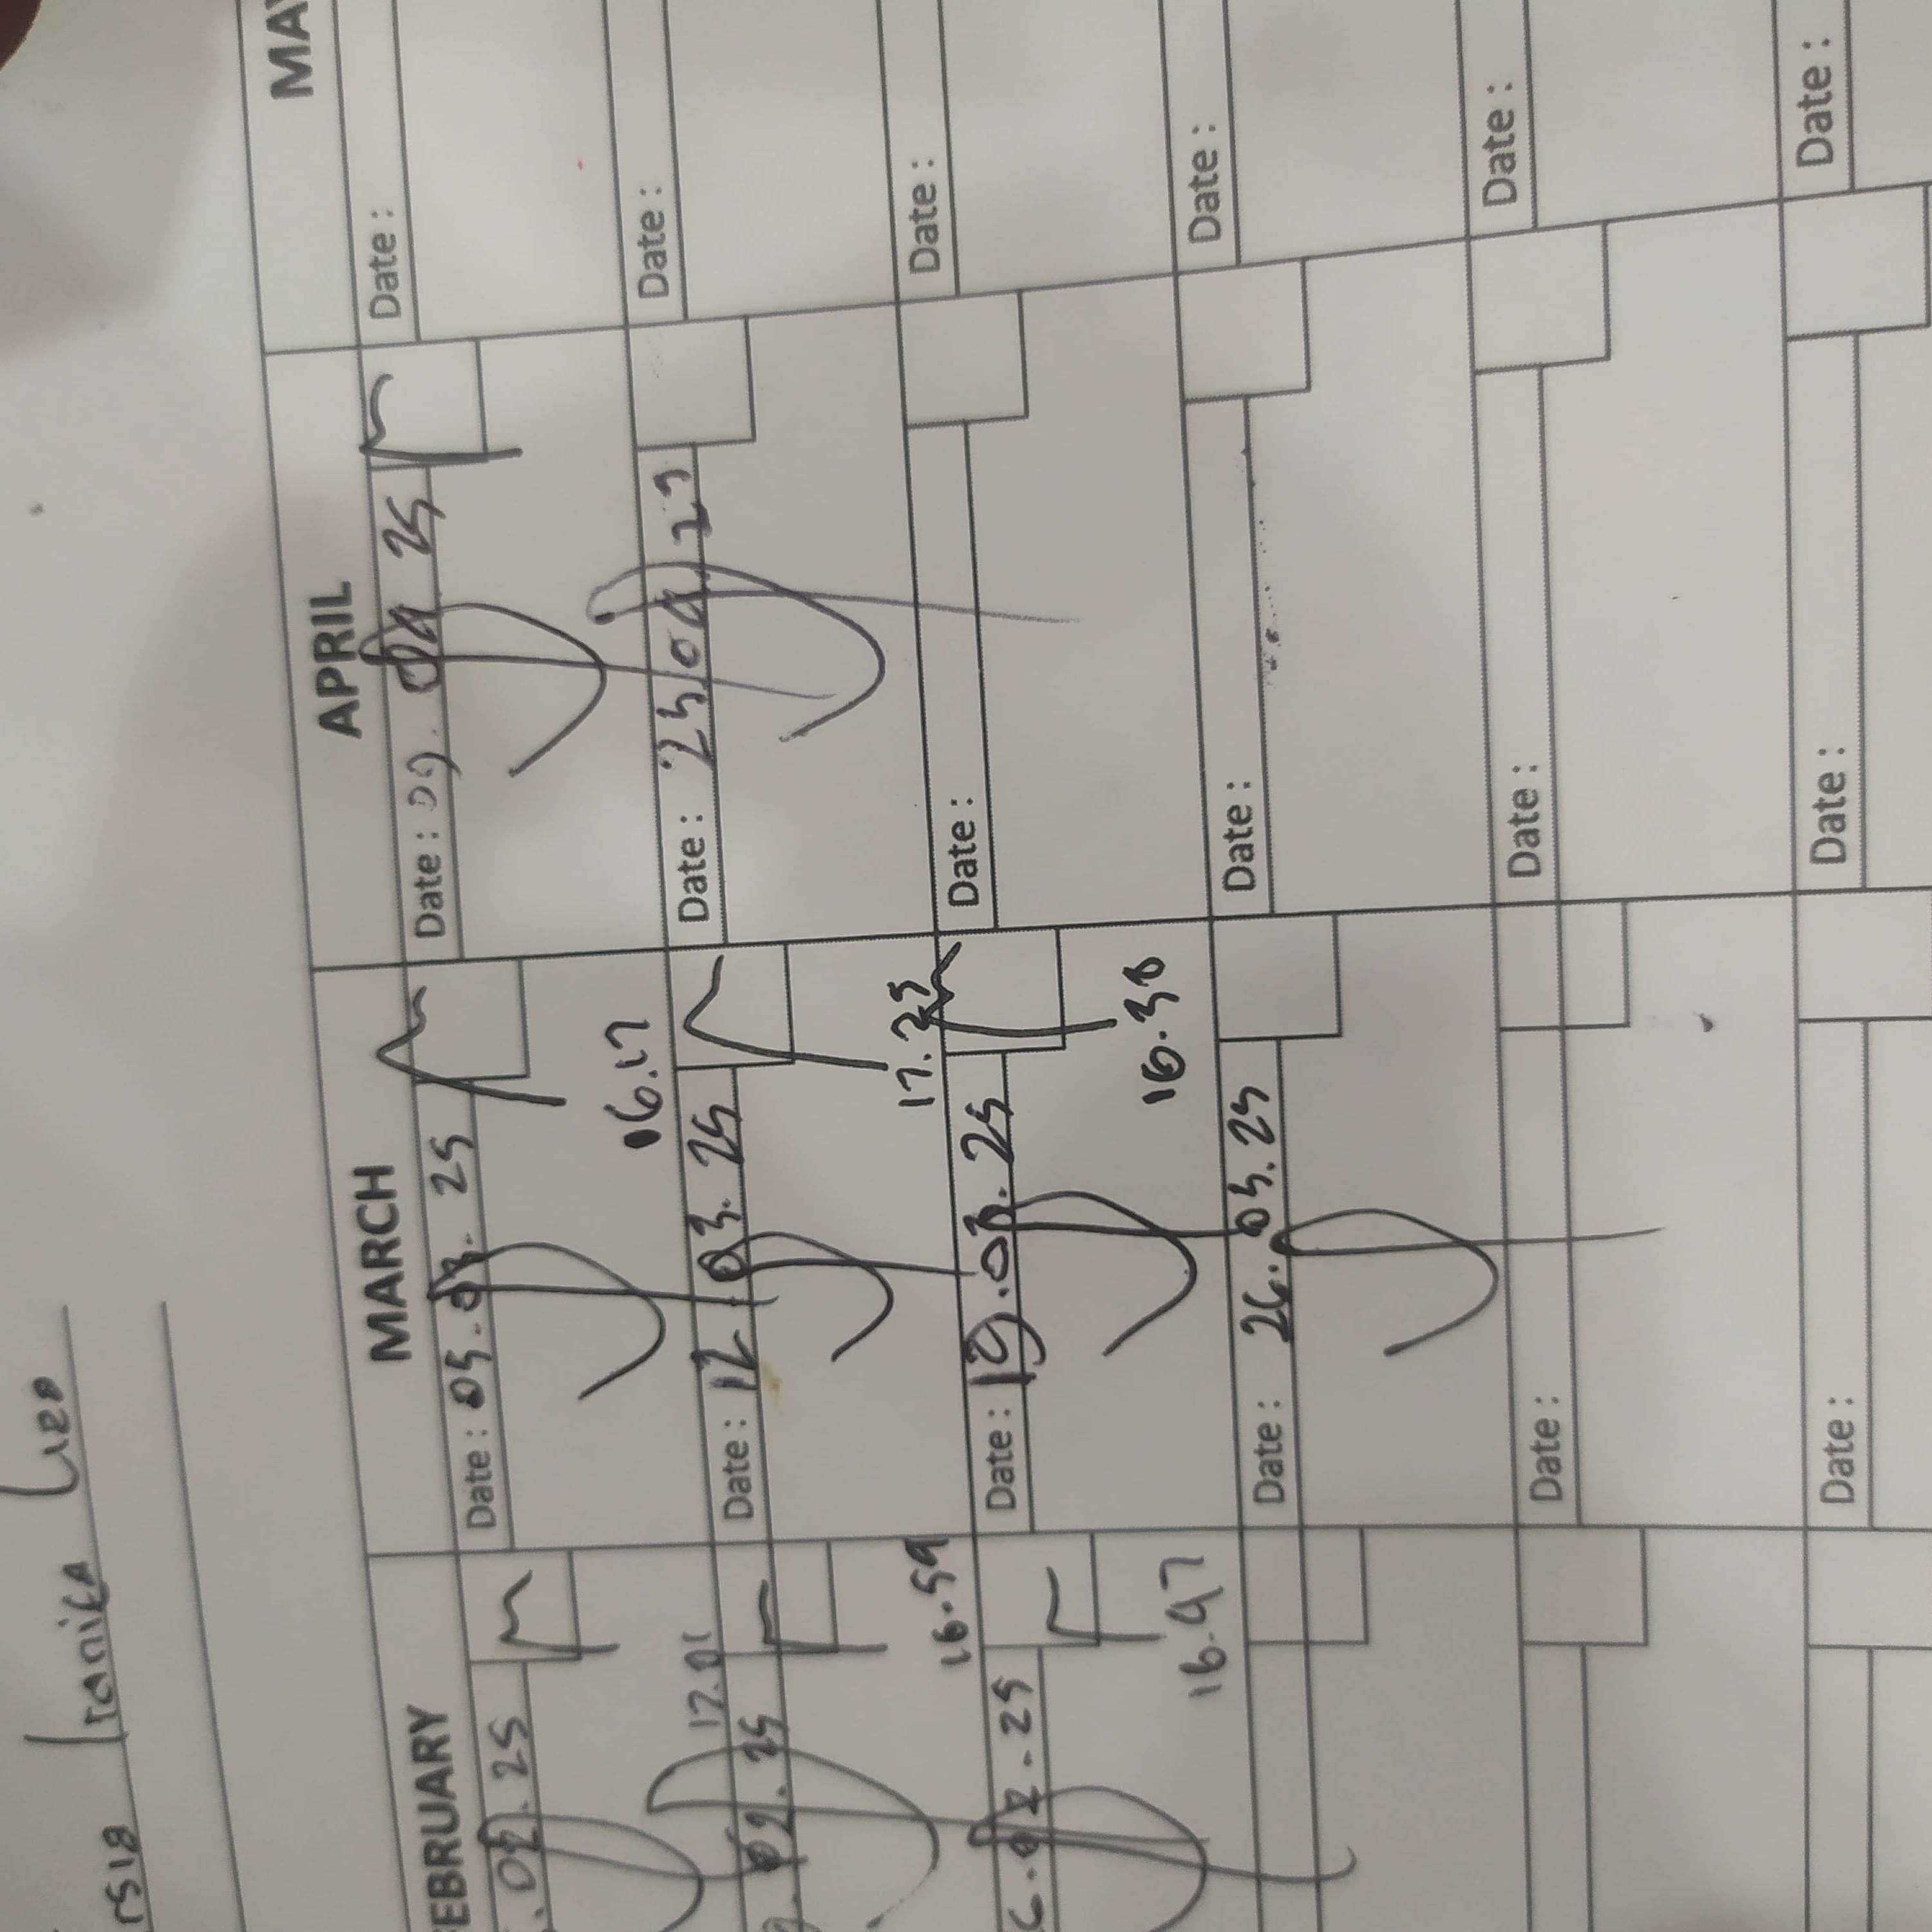 FEBRUARY MARCH APRIL
.02.25 Date : 05.03.25 Date : 09.04 25 Date :
17.01 16.17
.02.25 Date : 12 03.25 Date : 23.04.25 Date :
16.59 17.25
.02.25 Date : 19.03.25 Date : Date :
16.47 16.38
Date : 26.03.25 Date : Date :
Date : Date : Date :
Date : Date : Date :